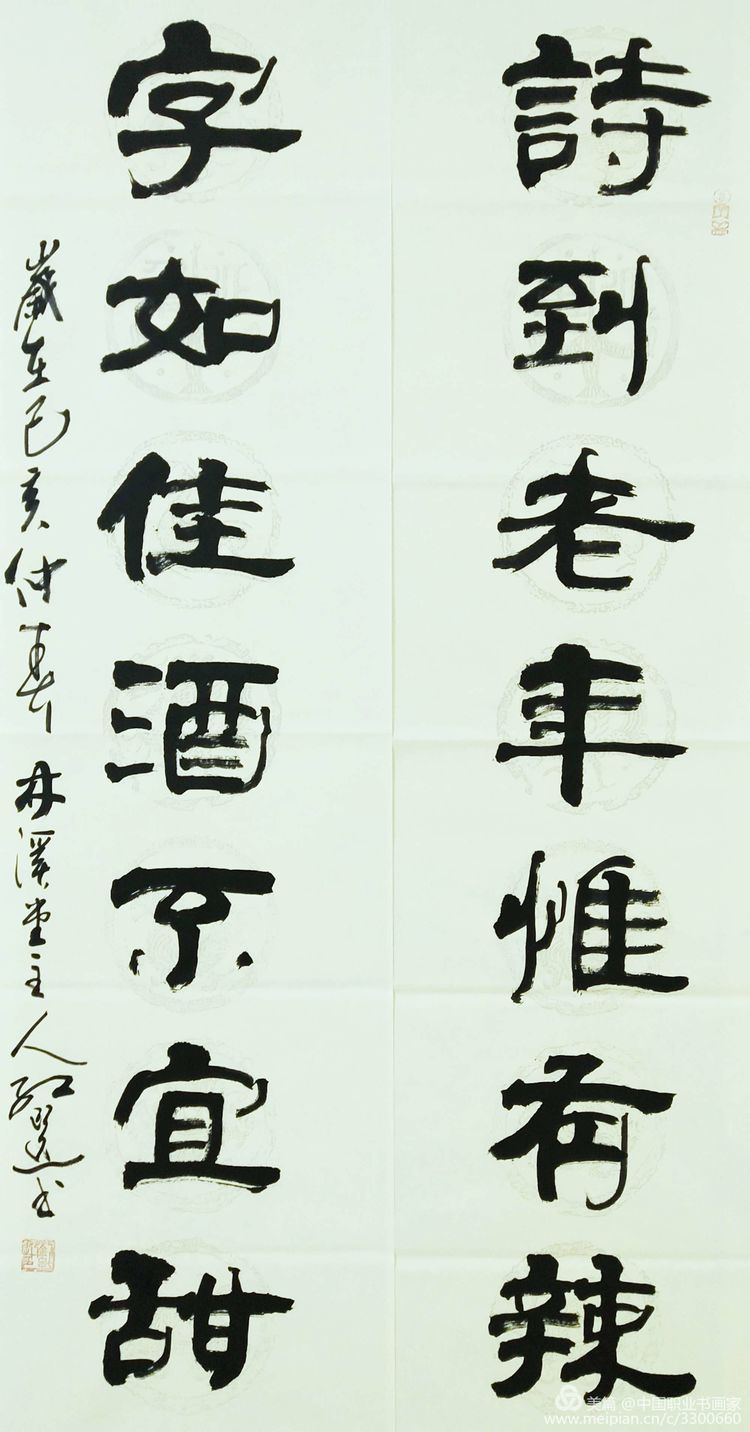 詩到老年惟有辣
字如佳酒不宜甜
歲在己亥仲春 林溪堂主人紅選书
美篇 @中国职业书画家
www.meipian.cn/c/3300660